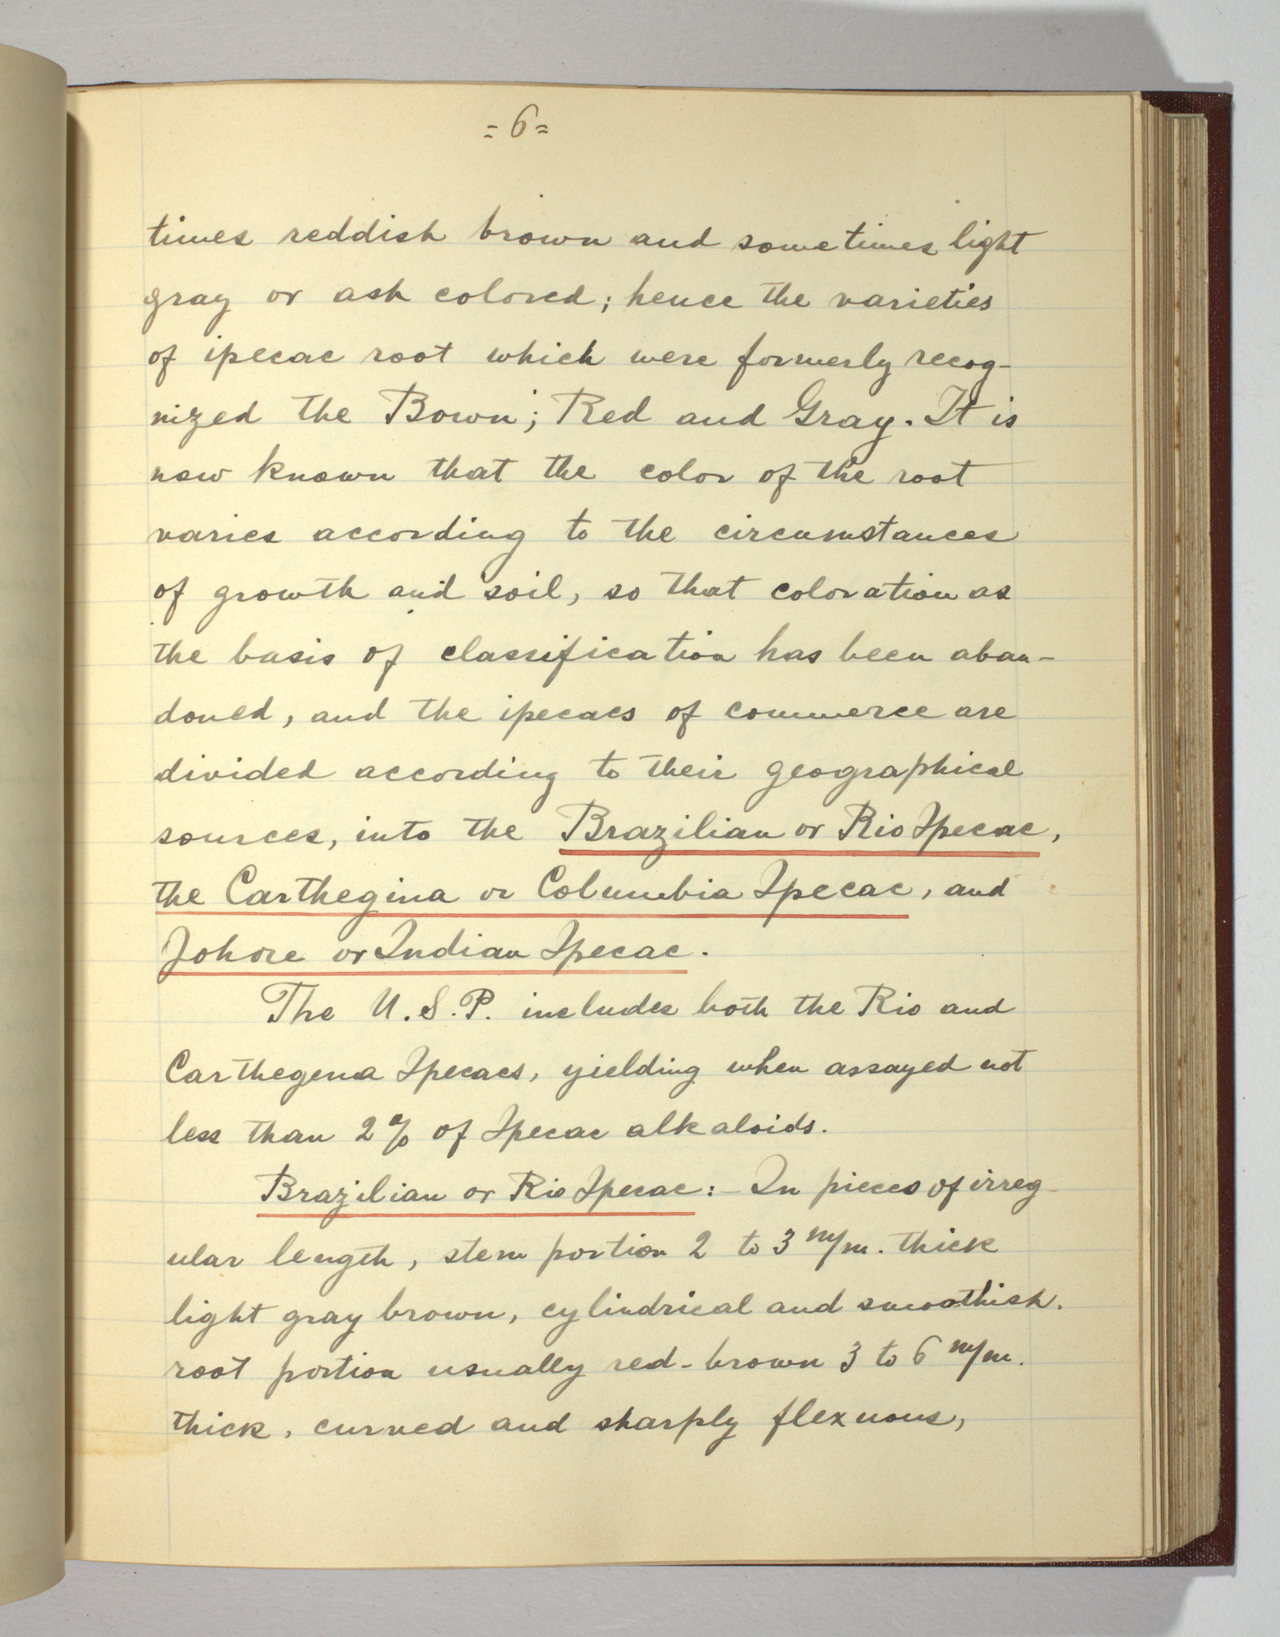 = 6 =
times reddish brown and sometimes light
gray or ash colored; hence the varieties
of ipecac root which were formerly recog-
nized the Bown; Red and Gray. It is
now known that the color of the root
varies according to the circumstances
of growth and soil, so that coloration as
the basis of classification has been aban-
doned, and the ipecacs of commerce are
divided according to their geographical
sources, into the Brazilian or Rio Ipecac,
the Carthegina or Columbia Ipecac, and
Johore or Indian Ipecac.
The U.S.P. includes both the Rio and
Carthegena Ipecacs, yielding when assayed not
less than 2% of Ipecac alkaloids.
Brazilian or Rio Ipecac:- In pieces of irreg-
ular length, stem portion 2 to 3 m/m. thick
light gray brown, cylindrical and smoothish.
root portion usually red-brown 3 to 6 m/m.
thick, curved and sharply flexuous,